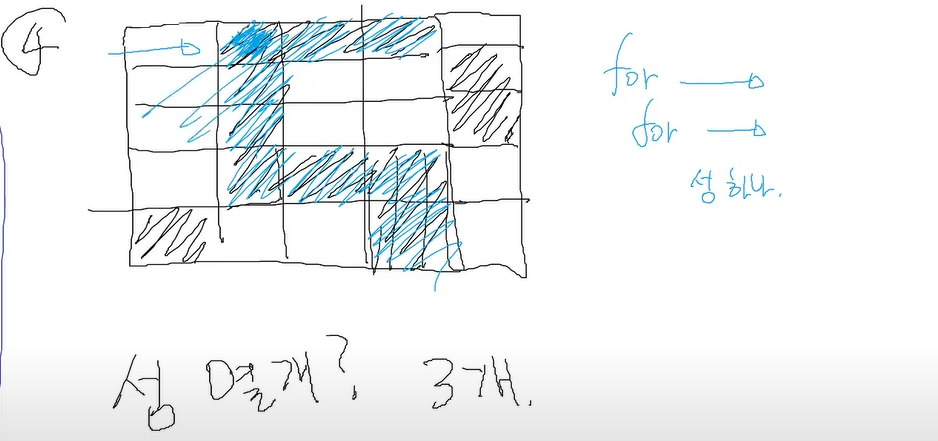 4
for →
for →
섬 하나.
섬 몇개? 3개.